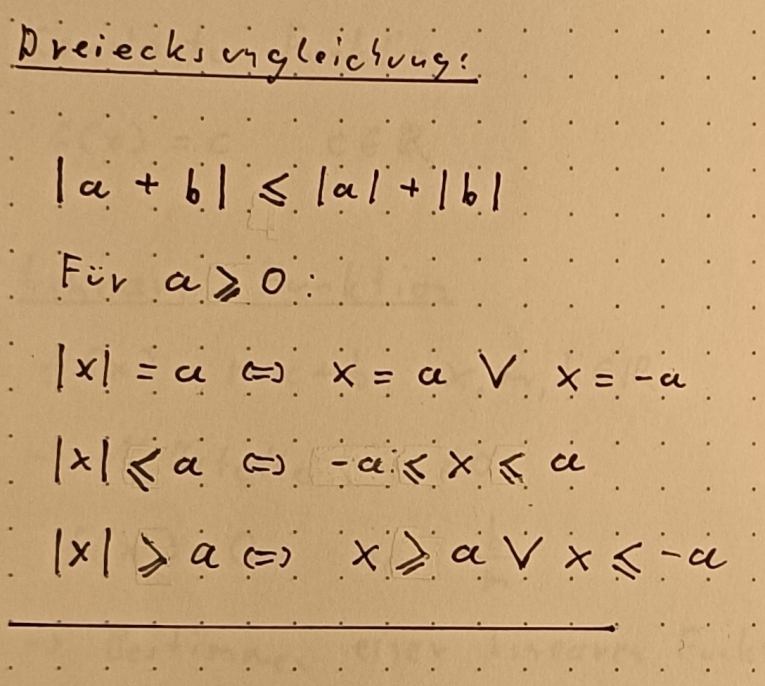 Dreiecksungleichung:
|a + b| ≤ |a| + |b|
Für a ⩾ 0:
|x| = a ⇔ x = a ∨ x = -a
|x| ⩽ a ⇔ -a ⩽ x ⩽ a
|x| ⩾ a ⇔ x ⩾ a ∨ x ⩽ -a